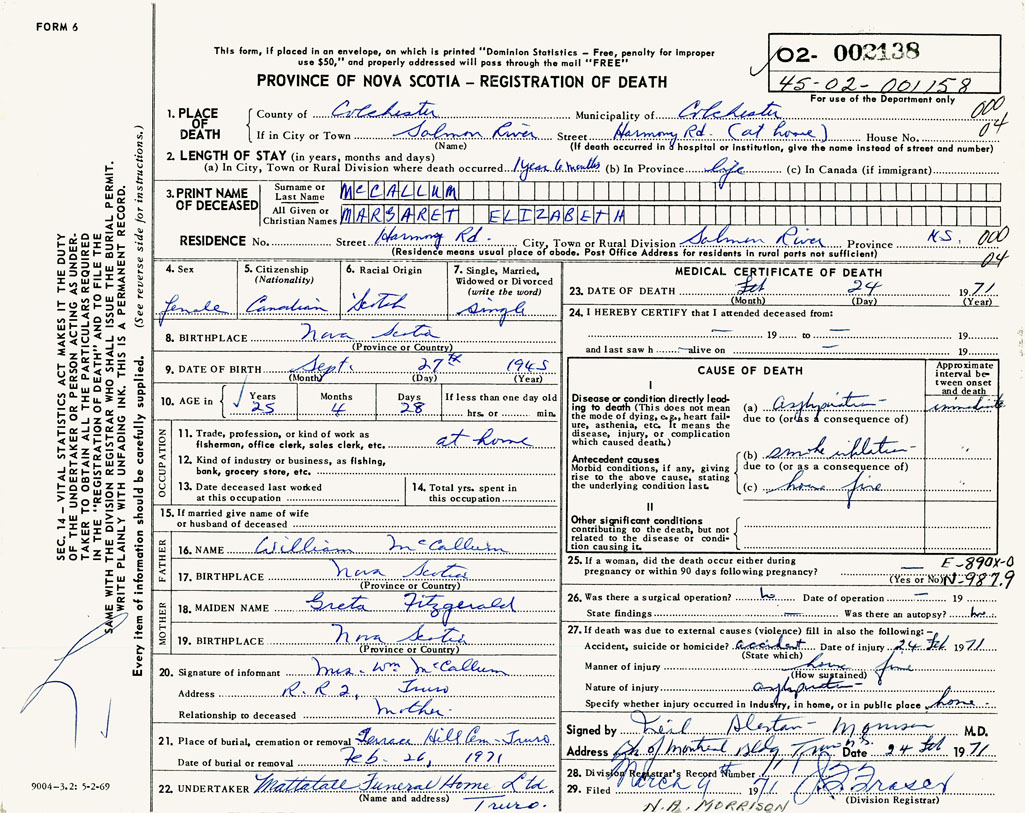 FORM 6
This form, if placed in an envelope, on which is printed "Dominion Statistics – Free, penalty for improper
use $50," and properly addressed will pass through the mail "FREE"
PROVINCE OF NOVA SCOTIA – REGISTRATION OF DEATH
02- 002138
45-02-001158
For use of the Department only
SEC. 14 – VITAL STATISTICS ACT MAKES IT THE DUTY
OF THE UNDERTAKER OR PERSON ACTING AS UNDER-
TAKER TO OBTAIN ALL THE PARTICULARS REQUIRED
IN THE "REGISTRATION OF DEATH" AND TO FILE THE
SAME WITH THE DIVISION REGISTRAR WHO SHALL ISSUE THE BURIAL PERMIT.
WRITE PLAINLY WITH UNFADING INK. THIS IS A PERMANENT RECORD.
Every item of information should be carefully supplied. (See reverse side for instructions.)
1. PLACE OF DEATH
County of Colchester Municipality of Colchester 000
If in City or Town Salmon River Street Harmony Rd. (at home) House No. 04
(Name) (If death occurred in hospital or institution, give the name instead of street and number)
2. LENGTH OF STAY (in years, months and days)
(a) In City, Town or Rural Division where death occurred 1 year 6 months (b) In Province life (c) In Canada (if immigrant)
3. PRINT NAME OF DECEASED
Surname or Last Name McCALLUM
All Given or Christian Names MARGARET ELIZABETH
RESIDENCE No. Street Harmony Rd. City, Town or Rural Division Salmon River Province N.S. 000
(Residence means usual place of abode. Post Office Address for residents in rural parts not sufficient) 04
4. Sex
female
5. Citizenship (Nationality)
Canadian
6. Racial Origin
Scotch
7. Single, Married, Widowed or Divorced (write the word)
single
8. BIRTHPLACE Nova Scotia
(Province or Country)
9. DATE OF BIRTH Sept. 27th 1945
(Month) (Day) (Year)
10. AGE in Years Months Days If less than one day old
25 4 28 hrs. or min.
OCCUPATION
11. Trade, profession, or kind of work as
fisherman, office clerk, sales clerk, etc. at home
12. Kind of industry or business, as fishing,
bank, grocery store, etc.
13. Date deceased last worked
at this occupation
14. Total yrs. spent in
this occupation
15. If married give name of wife
or husband of deceased
FATHER
16. NAME William McCallum
17. BIRTHPLACE Nova Scotia
(Province or Country)
MOTHER
18. MAIDEN NAME Greta Fitzgerald
19. BIRTHPLACE Nova Scotia
(Province or Country)
20. Signature of informant Mrs. Wm McCallum
Address R.R 2, Truro
Relationship to deceased Mother.
21. Place of burial, cremation or removal Terrace Hill Cem - Truro
Date of burial or removal Feb. 26, 1971
22. UNDERTAKER Mattatall Funeral Home Ltd.
(Name and address) Truro.
9004–3.2: 5-2-69
MEDICAL CERTIFICATE OF DEATH
23. DATE OF DEATH Feb 24 1971
(Month) (Day) (Year)
24. I HEREBY CERTIFY that I attended deceased from:
— 19 to — 19
and last saw h — alive on — 19
CAUSE OF DEATH
Approximate interval between onset and death
I
Disease or condition directly leading to death (This does not mean the mode of dying, e.g., heart failure, asthenia, etc. It means the disease, injury, or complication which caused death.)
(a) asphyxiation immediate
due to (or as a consequence of)
Antecedent causes
Morbid conditions, if any, giving rise to the above cause, stating the underlying condition last.
(b) smoke inhalation "
due to (or as a consequence of)
(c) house fire "
II
Other significant conditions
contributing to the death, but not
related to the disease or condi-
tion causing it.
25. If a woman, did the death occur either during
pregnancy or within 90 days following pregnancy? —
(Yes or No)
E-890X-0
N-987.9
26. Was there a surgical operation? no Date of operation — 19
State findings — Was there an autopsy? no.
27. If death was due to external causes (violence) fill in also the following:–
Accident, suicide or homicide? accident Date of injury 24 Feb 1971
(State which)
Manner of injury house fire
(How sustained)
Nature of injury asphyxiation
Specify whether injury occurred in industry, in home, or in public place home.
Signed by Neil Morrison M.D.
Address Bk of Montreal Bldg Truro N.S. Date 24 Feb 1971
28. Division Registrar's Record Number
29. Filed March 4 1971 Fraser
(Division Registrar)
N.A. MORRISON